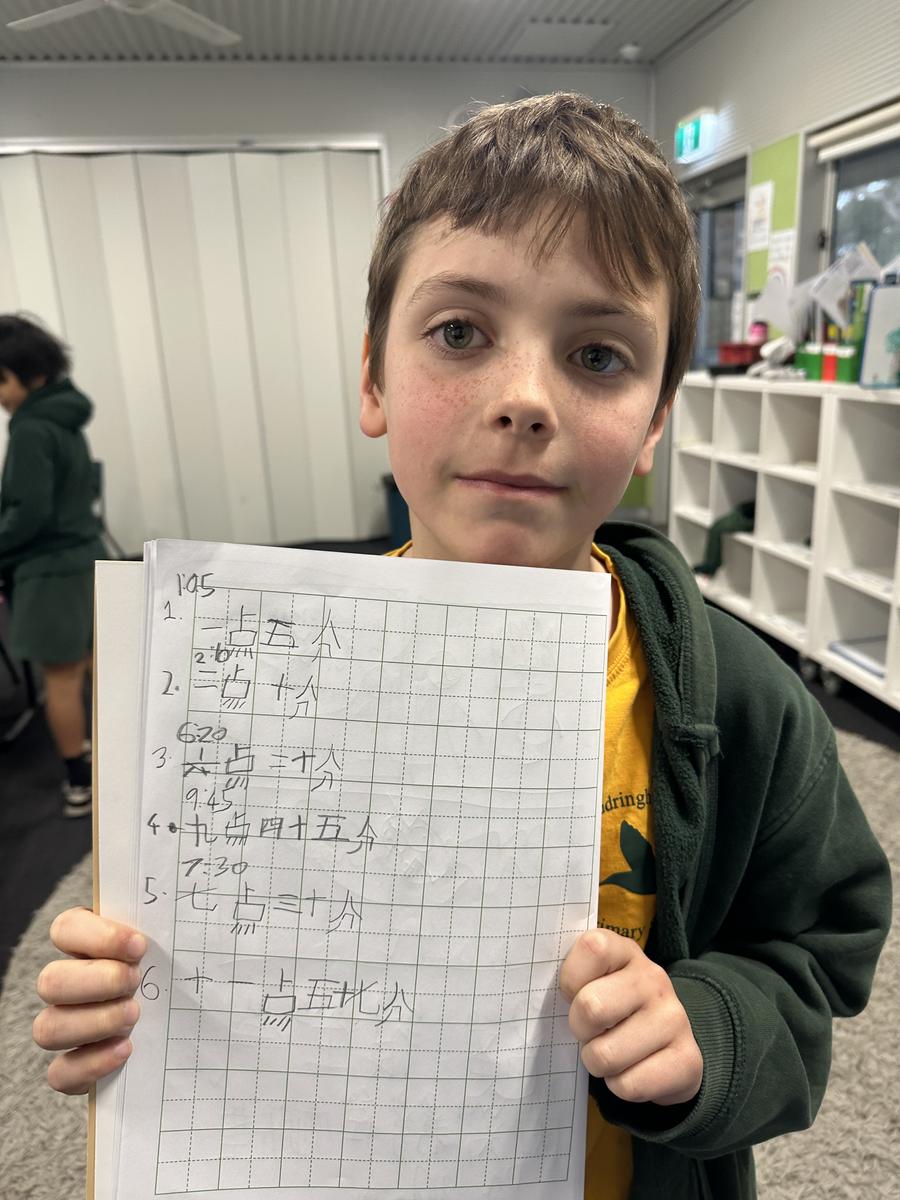 1:05
1. 一点五分
2:10
2. 二点十分
6:20
3. 六点二十分
9:45
4. 九点四十五分
7:30
5. 七点三十分
6. 十一点五十七分